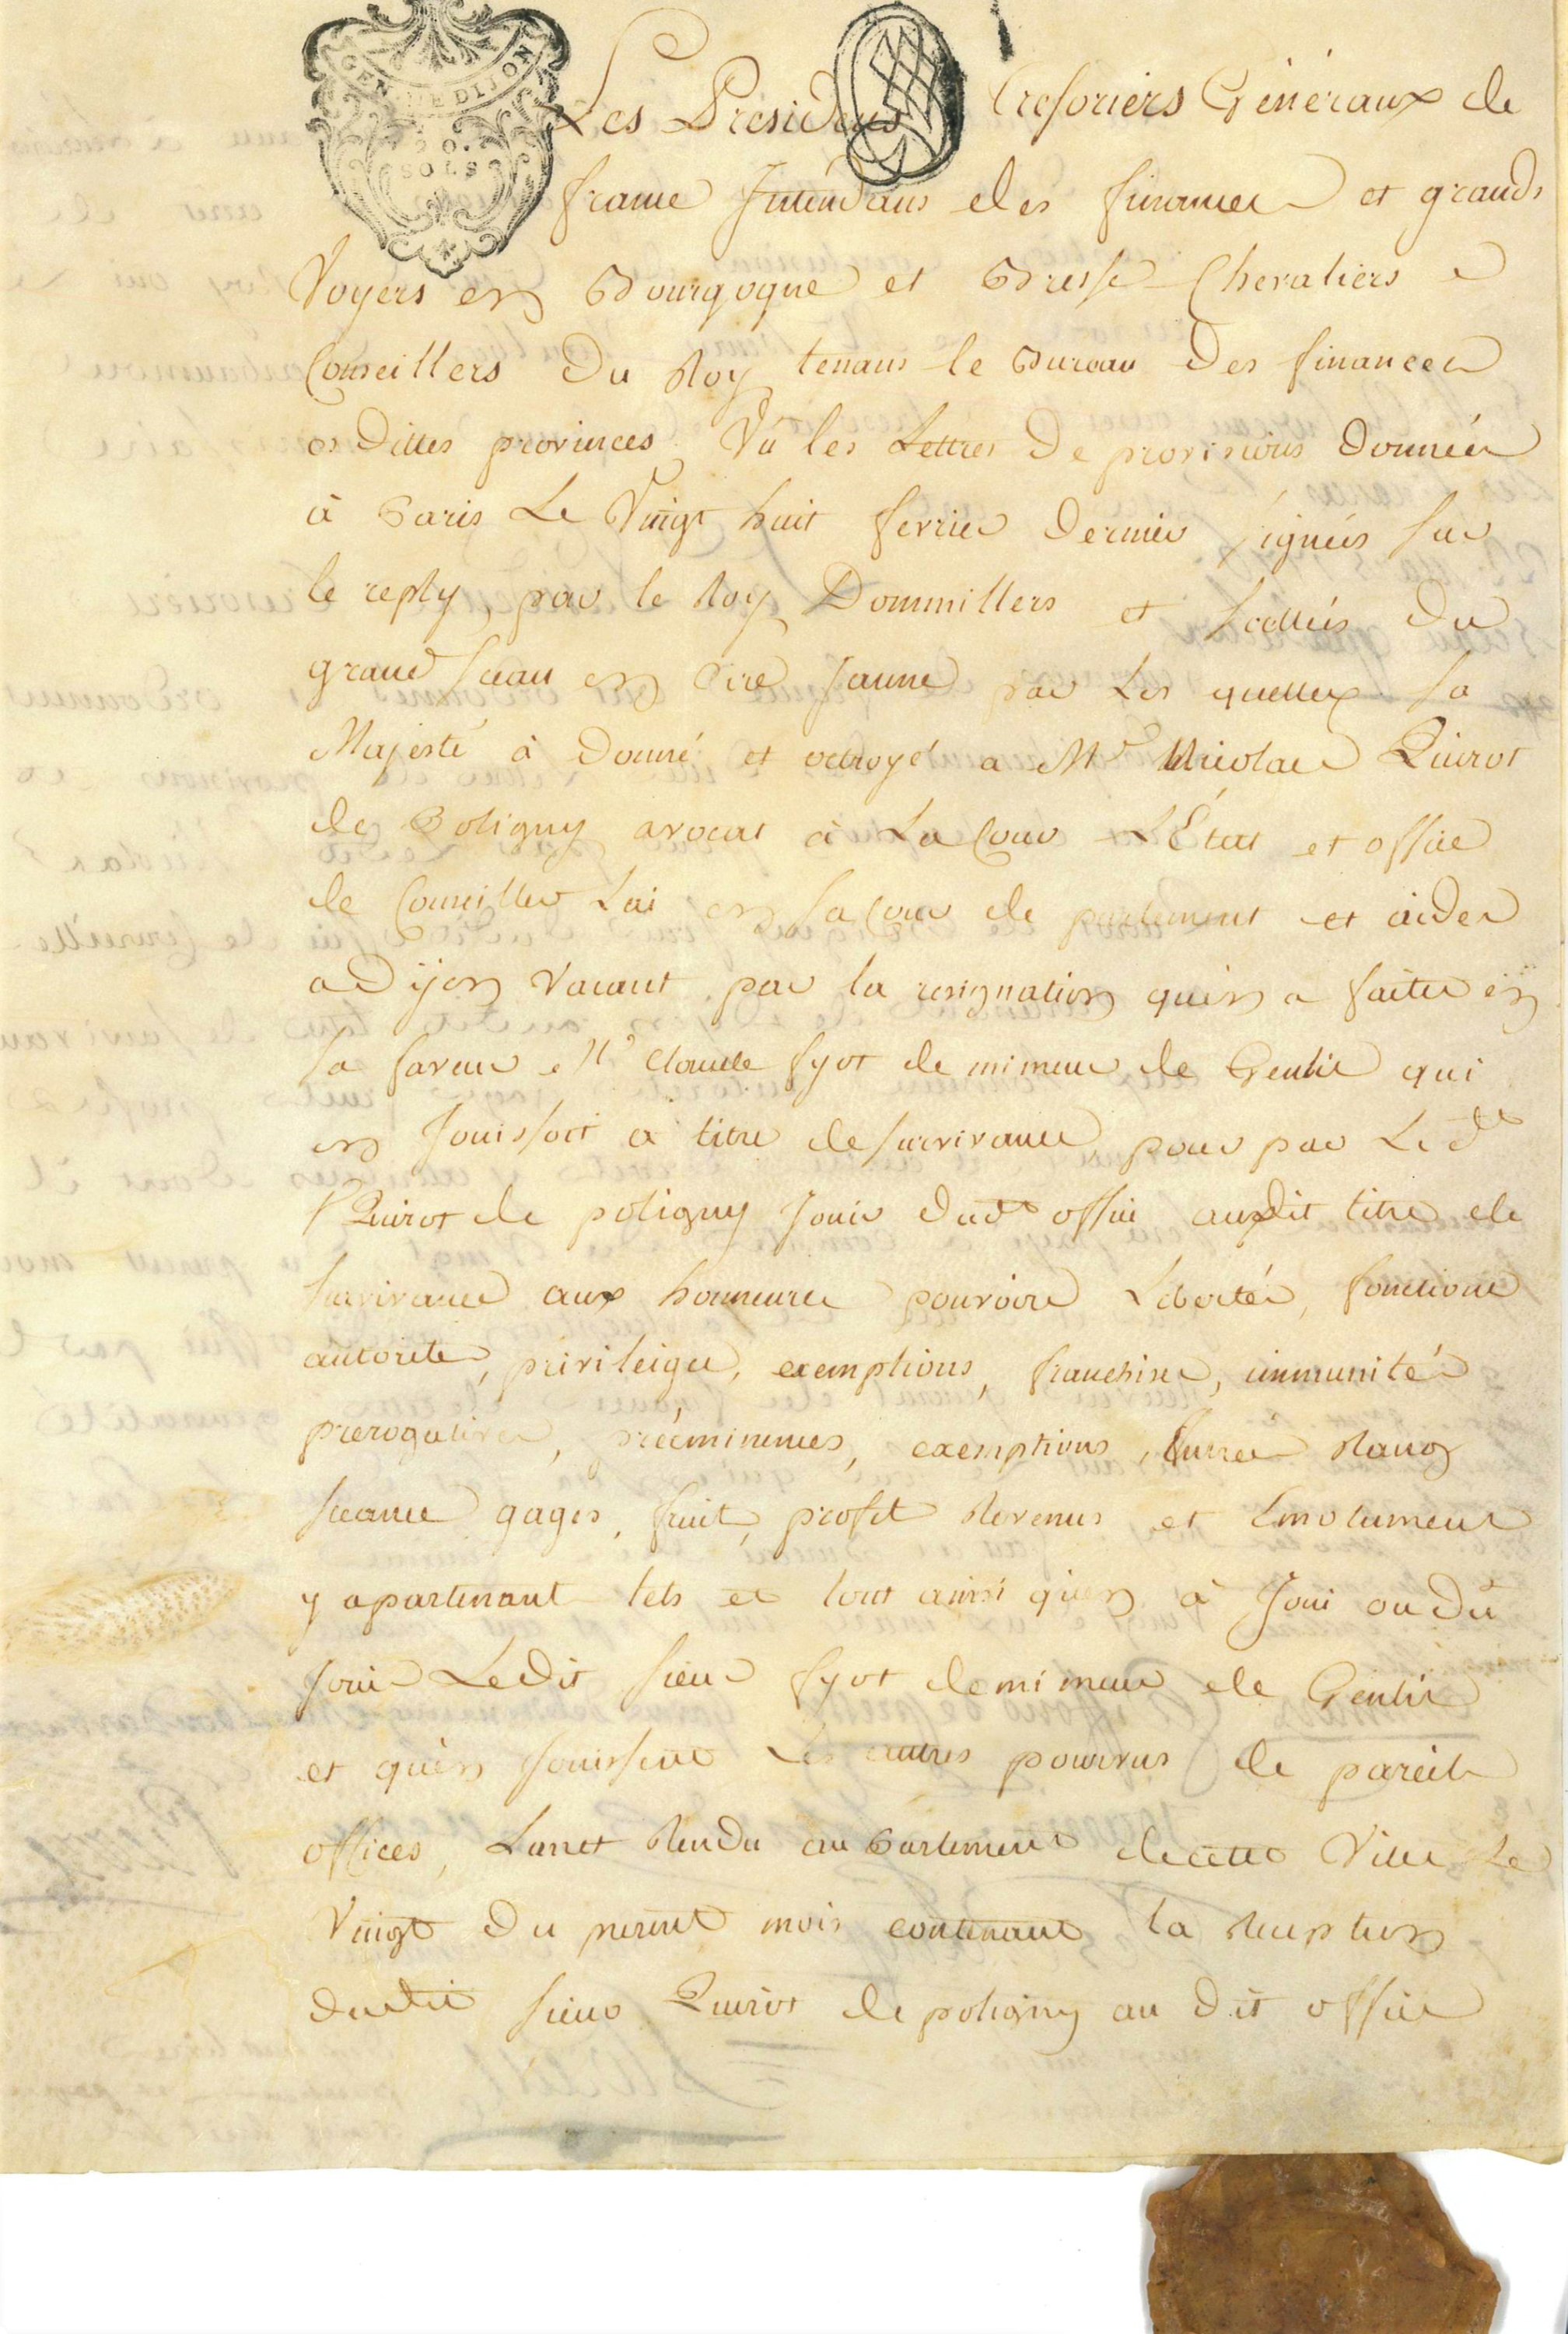 GEN DE DIJON
20.
SOLS
Les Presidens Tresoriers Généraux de
france Intendans des finances et grands
Voyers en Bourgogne et Bresse Chevaliers
Conseillers Du Roy tenans le Bureau Des finances
es Dittes provinces Vû les Lettres De provisions Données
à Paris Le Vingt huit fevrier Dernier signées sur
le reply, par le Roy Dommillers et scellées Du
grand sceau en Cire Jaune par Les quelles sa
Majesté à Donné et octroyé a Me Nicolas Quirot
de Poligny avocat à La Cour L'État et office
de Conseiller Lai en sa Cour de parlement et aides
a Dijon Vacant par la resignation qu'en a faitte en
sa faveur Me Claude fyot de mimeure de Genlis qui
en Jouissoit a titre de survivance pour par Led
Sr Quirot de poligny Jouir dudt office audit titre de
survivance aux honneurs pouvoirs Libertés, fonctions
autorités, privileiges, exemptions, franchises, immunités
prerogatives, préeminences, exemptions, Entrée Rang
sceance gages, fruits, profits Revenus et Emolumens
y apartenant tels et tout ainsi qu'en à Joui ou Dû
Jouir Ledit sieur fyot de mimeure de Genlis
et qu'en Jouissent Les autres pourvus de pareils
offices, Larret Rendu au Parlement decette Ville Le
Vingt Du present mois contenant la Reception
dudit sieur Quirot de poligny au dit office